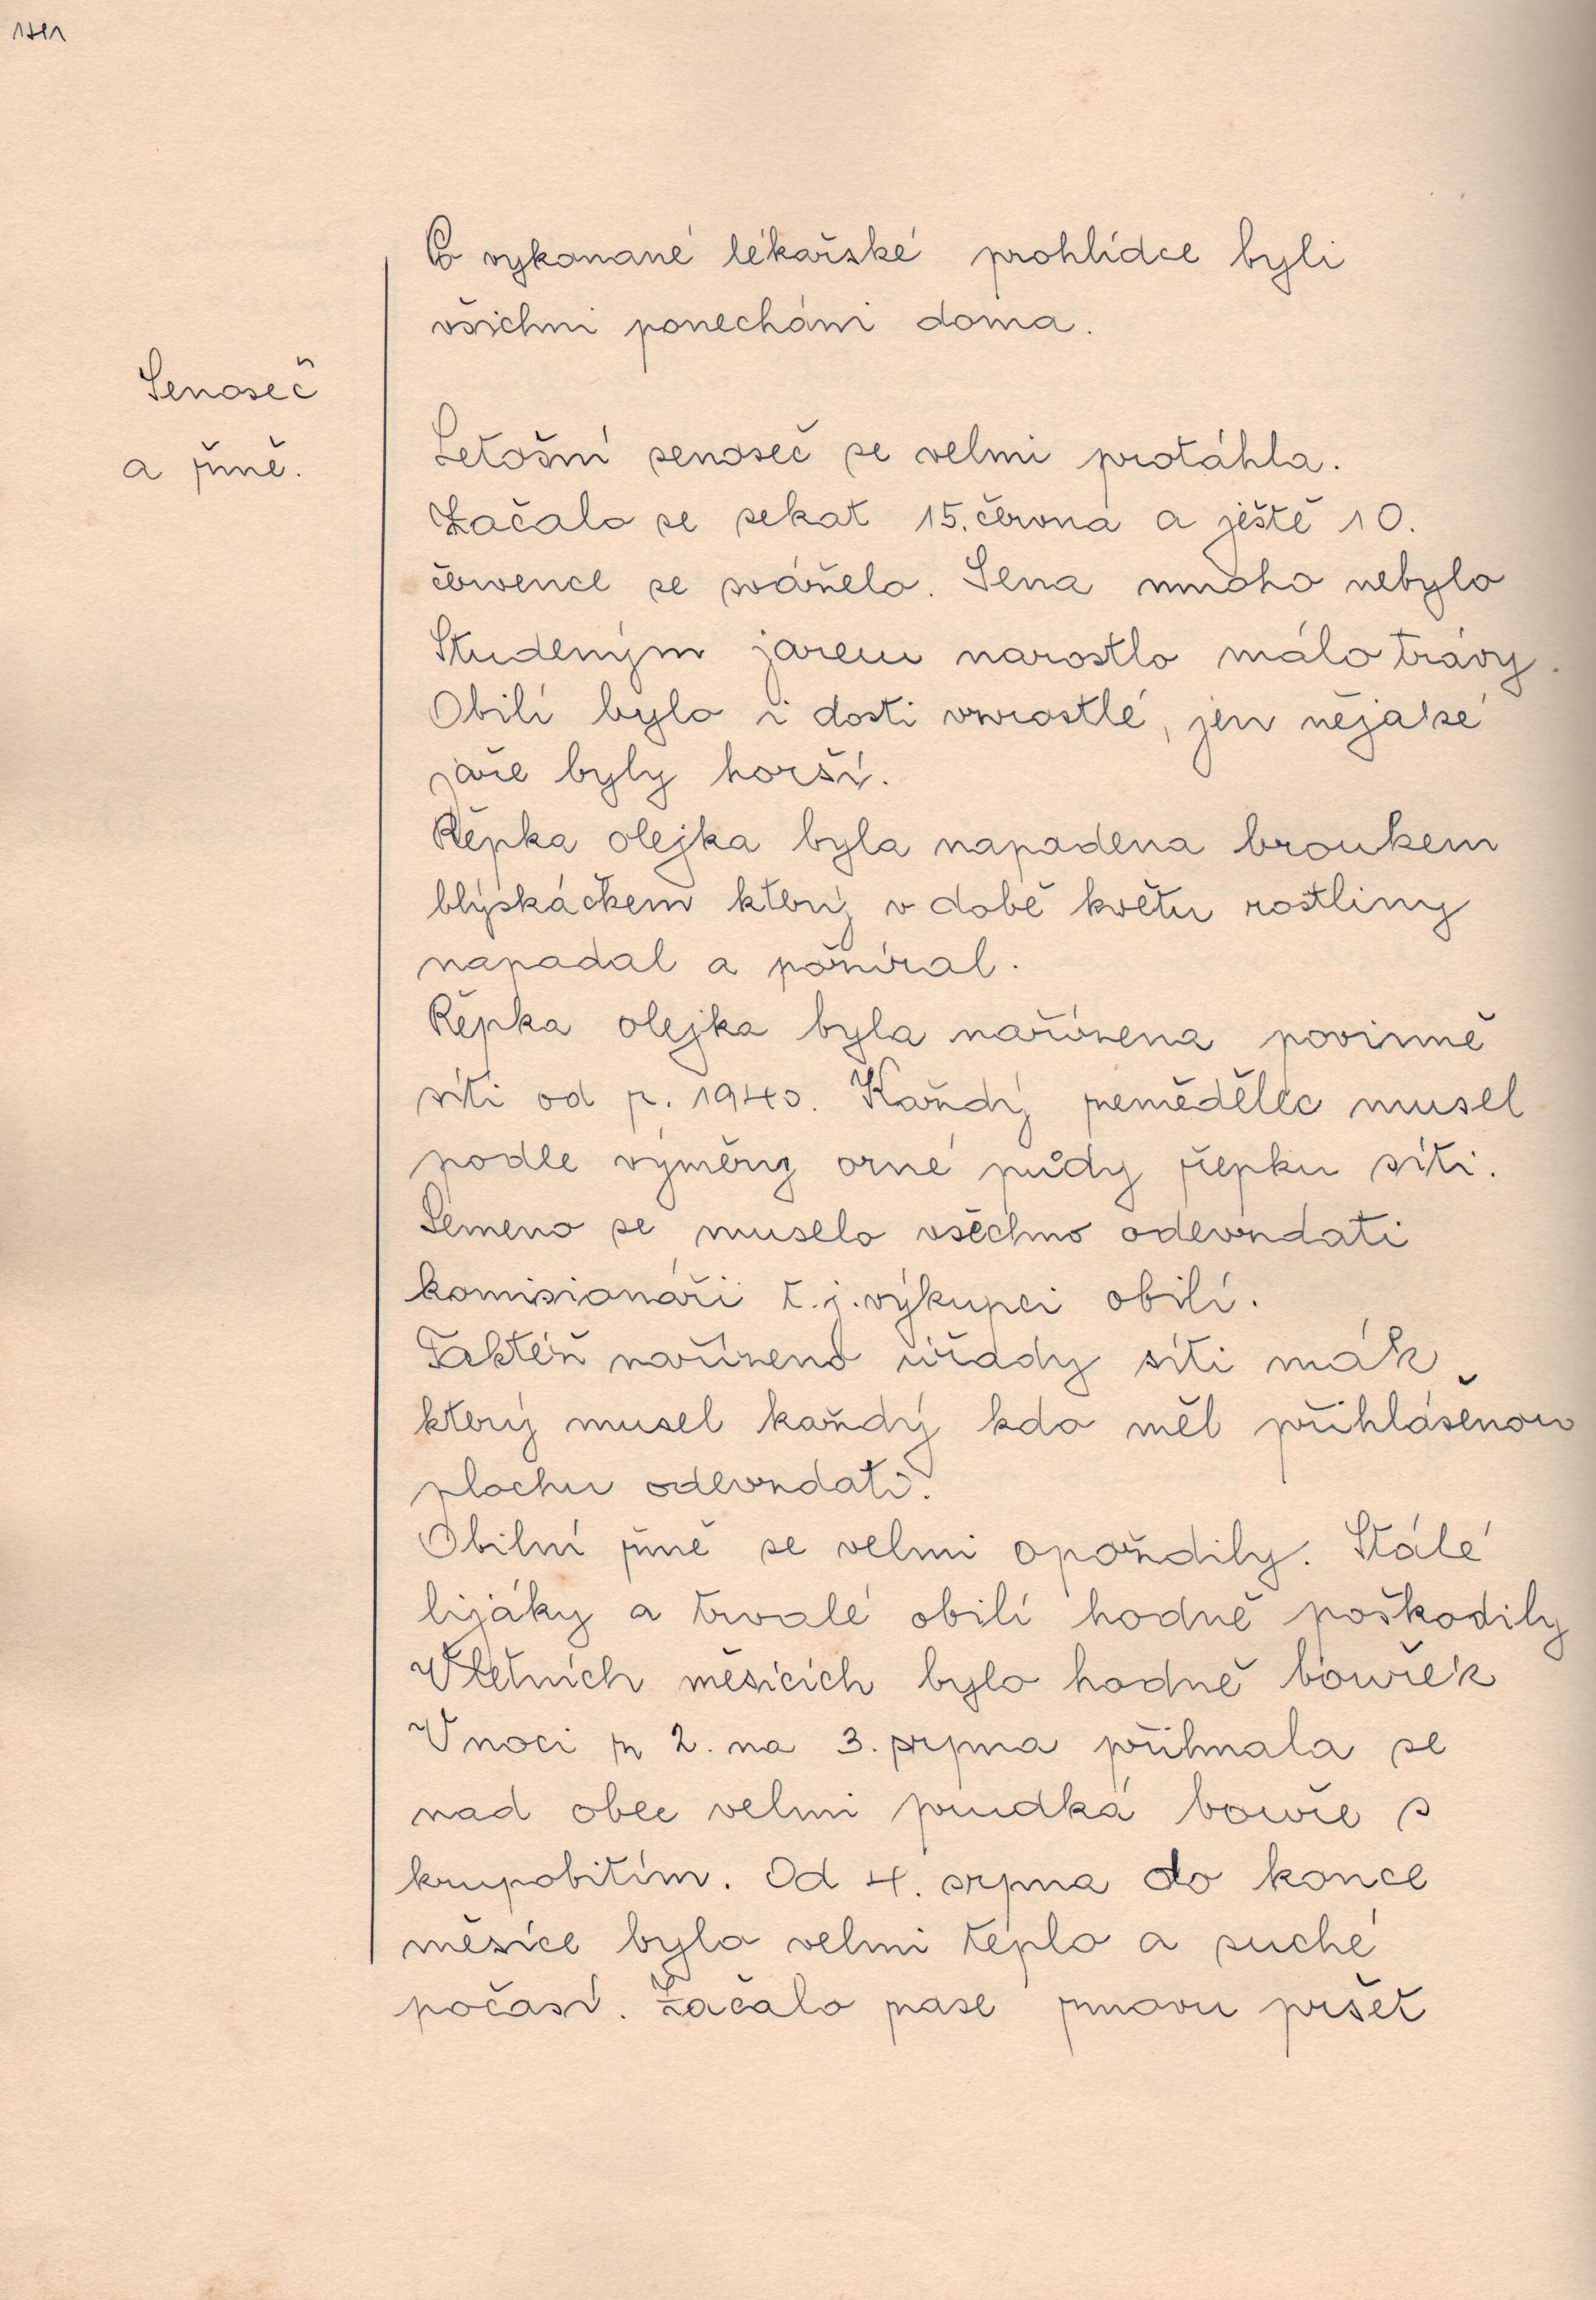 141
Po vykonané lékařské prohlídce byli
všichni ponecháni doma.
Senoseč
a žně.
Letošní senoseč se velmi protáhla.
Začalo se sekat 15. června a ještě 10.
července se sváželo. Sena mnoho nebylo
Studeným jarem narostlo málo trávy.
Obilí bylo i dosti vzrostlé, jen nějaké
jaře byly horší.
Řepka olejka byla napadena broukem
blýskáčkem který v době květu rostliny
napadal a požíral.
Řepka olejka byla nařízena povinně
síti od r. 1940. Každý zemědělec musel
podle výměry orné půdy řepku síti.
Semeno se muselo všechno odevzdati
komisionáři t.j. výkupci obilí.
Taktéž nařízeno úřady síti mák
který musel každý kdo měl přihlášenou
plochu odevzdati.
Obilní žně se velmi opozdily. Stálé
lijáky a trvalé obilí hodně poškodily
V letních měsících bylo hodně bouřek
V noci z 2. na 3. srpna přihnala se
nad obec velmi prudká bouře s
krupobitím. Od 4. srpna do konce
měsíce bylo velmi teplo a suché
počasí. Začalo zase znovu pršet